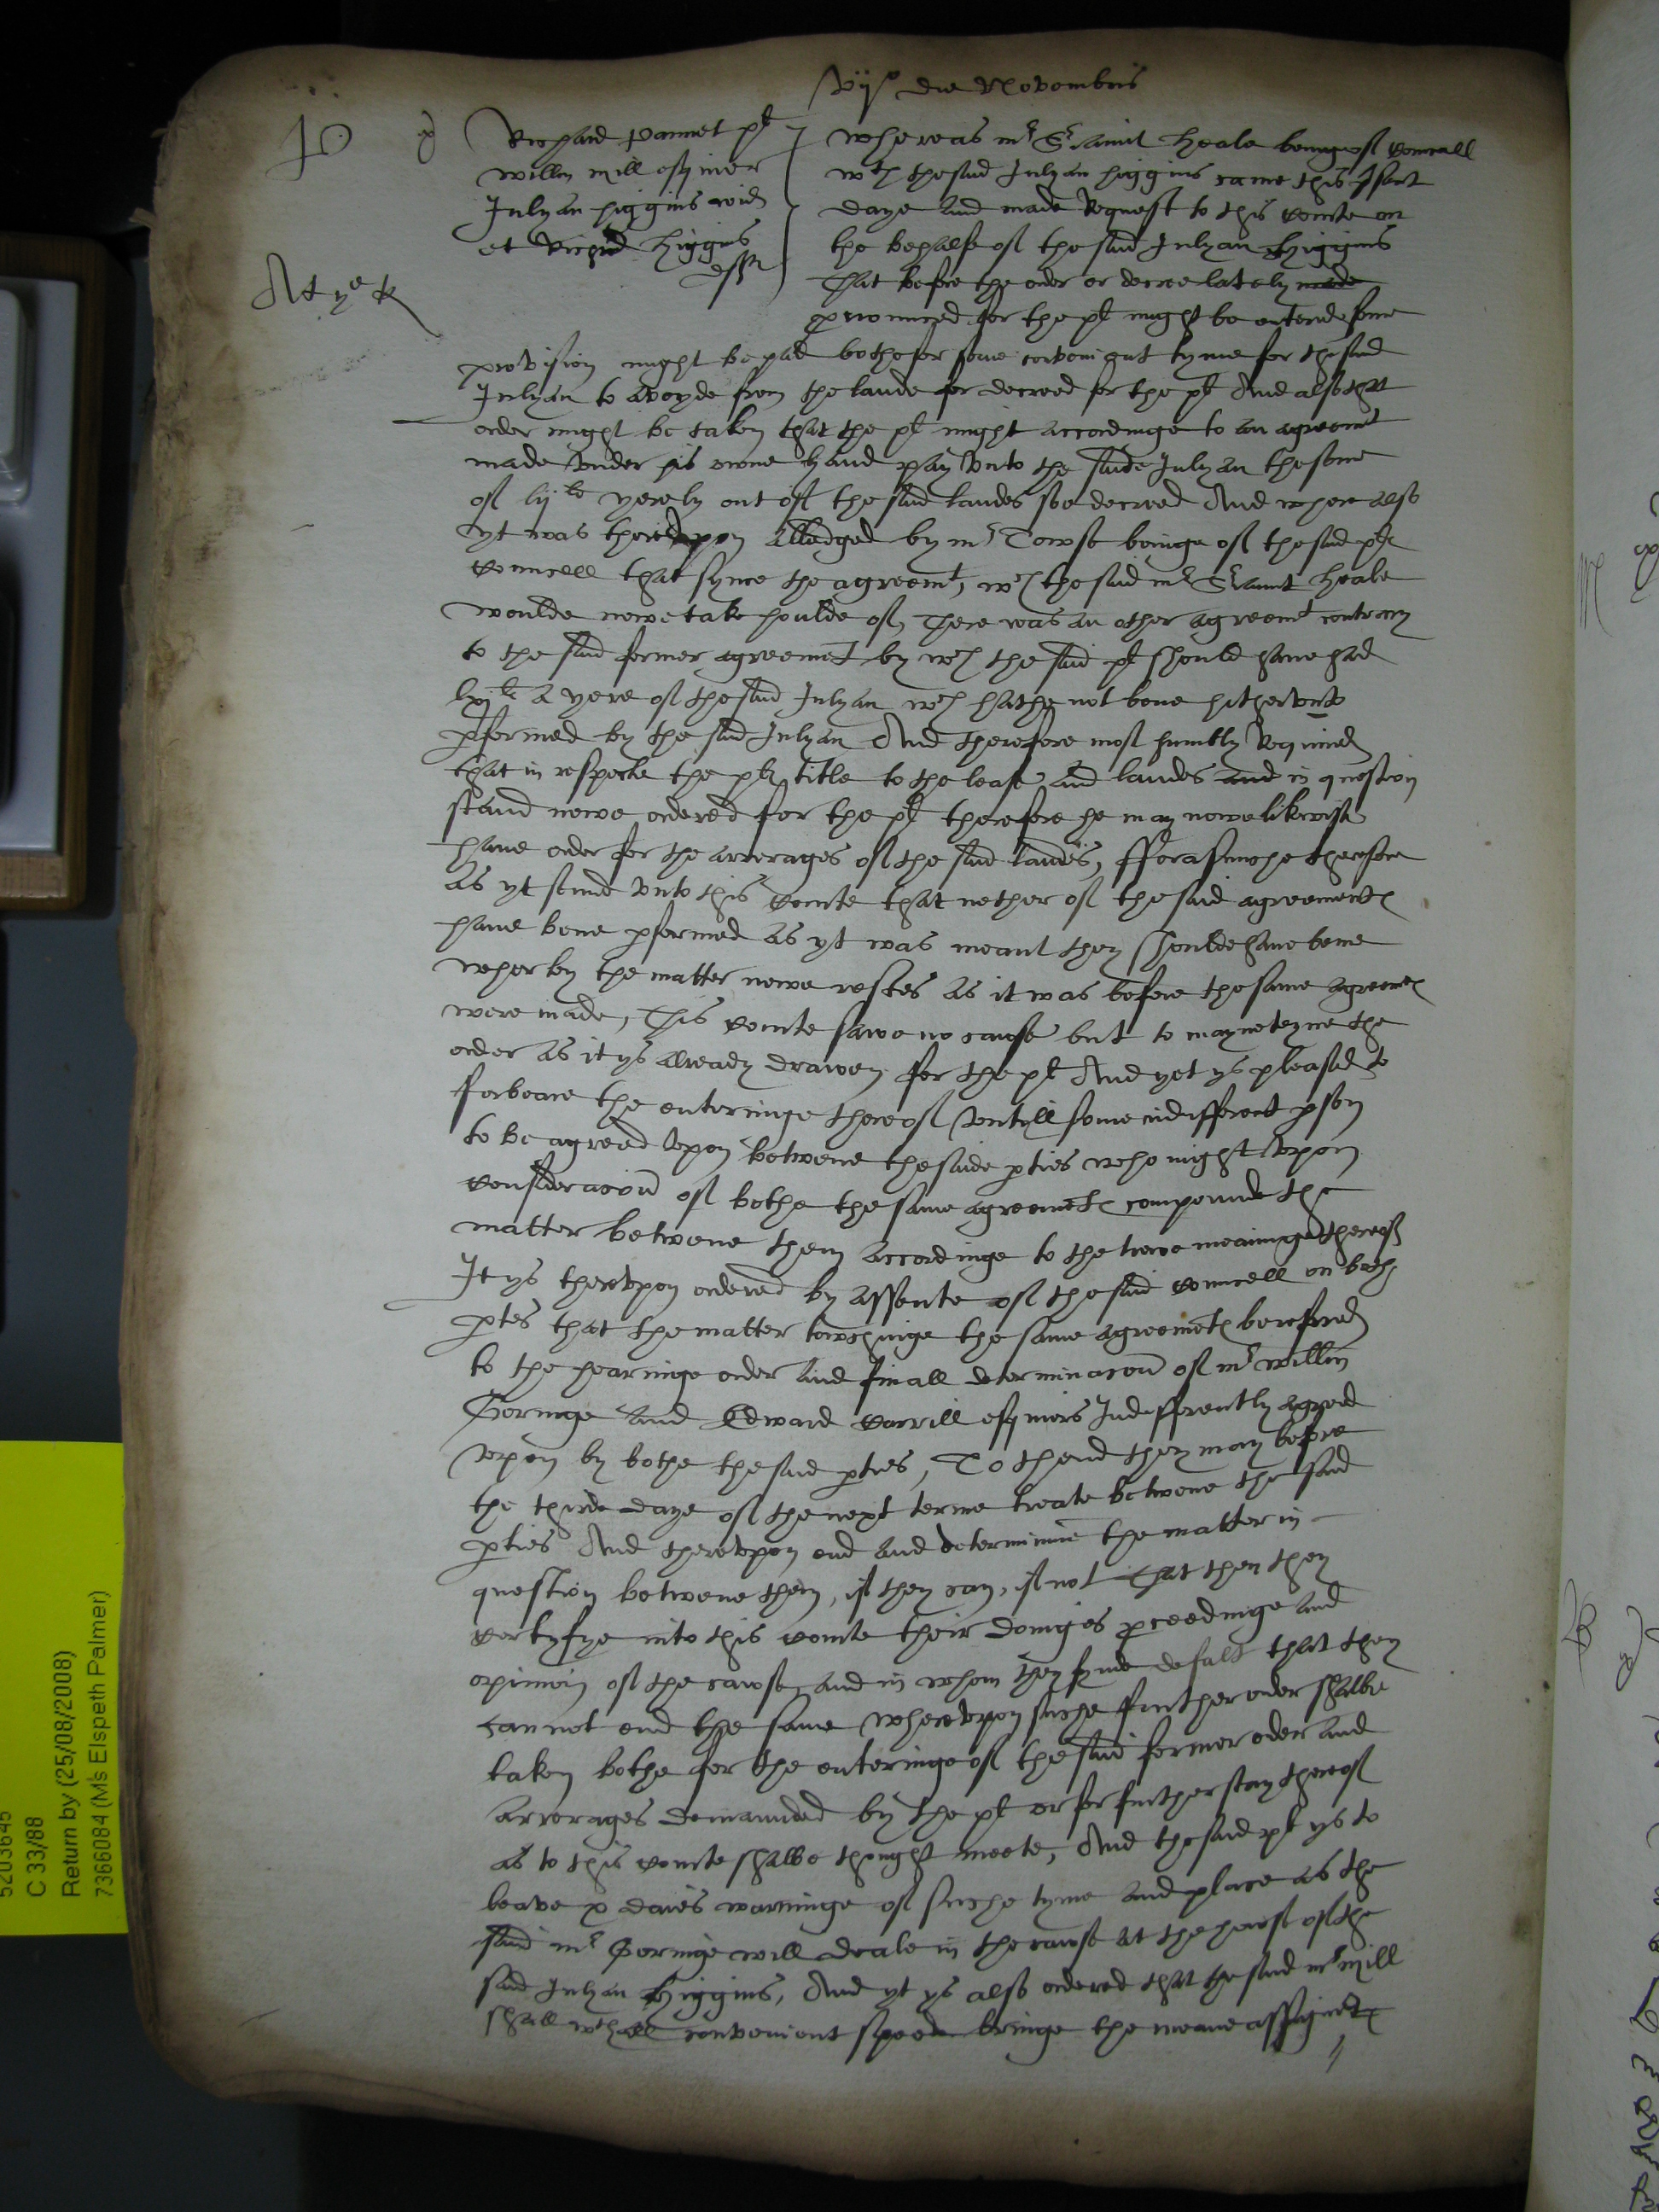 xvijº die Novembris
Richard Pannet pl
willm mill esquier
Julyan higgins wid
et Richard Higgins
deftes
whereas mr Sriaunt Heale beinge of Councell
wth the said Julyan higgins came this psent
daye and made Request to this Courte on
the behalfe of the said Julyan Higgins
That before the order or decree lately made
pnounced for the pl might be entred some
provision might be had bothe for some convenient tyme for the said
Julyan to avoyde from the lande soe decreed for the pl And also that
order might be taken that the pl might accordinge to an agreemt
made under his owne hand pay unto the saide Julyan the some
of lijli yerely out of the said landes soe decreed And where also
yt was thereupon alledged by mr Towse beinge of the said pltes
Councell that synce the agreemt, wch the said mr Sriaunt Heale
woulde nowe take houlde of, There was an other agreemt contrary
to the said former agreement by wch the said pl should have had
a yere of the said Julyan wch hathe not bene hitherunto
pformed by the said Julyan And therefore most humbly Required
that in respecte the pltes title to the lease and landes and in question
stand nowe ordered for the pl therefore he may nowe likewise
have order for the arrerages of the said landes, fforasmuche therefore
as yt semed unto this Courte that nether of the said agreements
have bene pformed as yt was meant they shoulde have bene
wherby the matter nowe restes as it was before the same agreemtes
were made, This Courte sawe no cause but to mayneteyne the
order as it ys already drawen for the pl And yet ys pleased to
forbeare the enteringe thereof untill some indifferent pson
to be agreed upon betwene the saide pties who might upon
Consideracon of bothe the same agreemtes compounde the
matter betwene them accordinge to the trewe meaninge thereof
It ys thereupon ordered by assente of the said Councell on both
ptes that the matter towchinge the same agreemtes be referred
to the hearinge order and finall determinacon of mr willm
Goringe and Edward Carrill esquiers Indifferently agreed
upon by bothe the said pties, To thend they may before
the thirde daye of the next terme treate betwene the said
pties And thereupon end and determine the matter in
question betwene them, if they can, if not That then they
Certyfye into this Courte their doinges pceedinge and
opinion of the cawse, and in whom they fynde defalt that they
can not end the same whereupon suche further order shalbe
taken bothe for the enteringe of the said former order and
arrerages demaunded by the pl or for further stay thereof
as to this Courte shalbe thought meete, And the said pl ys to
leave x daies warninge of suche tyme and place as the
said mr Goringe will deale in the cawse at the howse of the
said Julyan Higgins, And yt ys also ordered that the said mr mill
shall wth all convenient speede bringe the meane assignmtes
C 33/88
Return by (25/08/2008)
7366084 (Ms Elspeth Palmer)